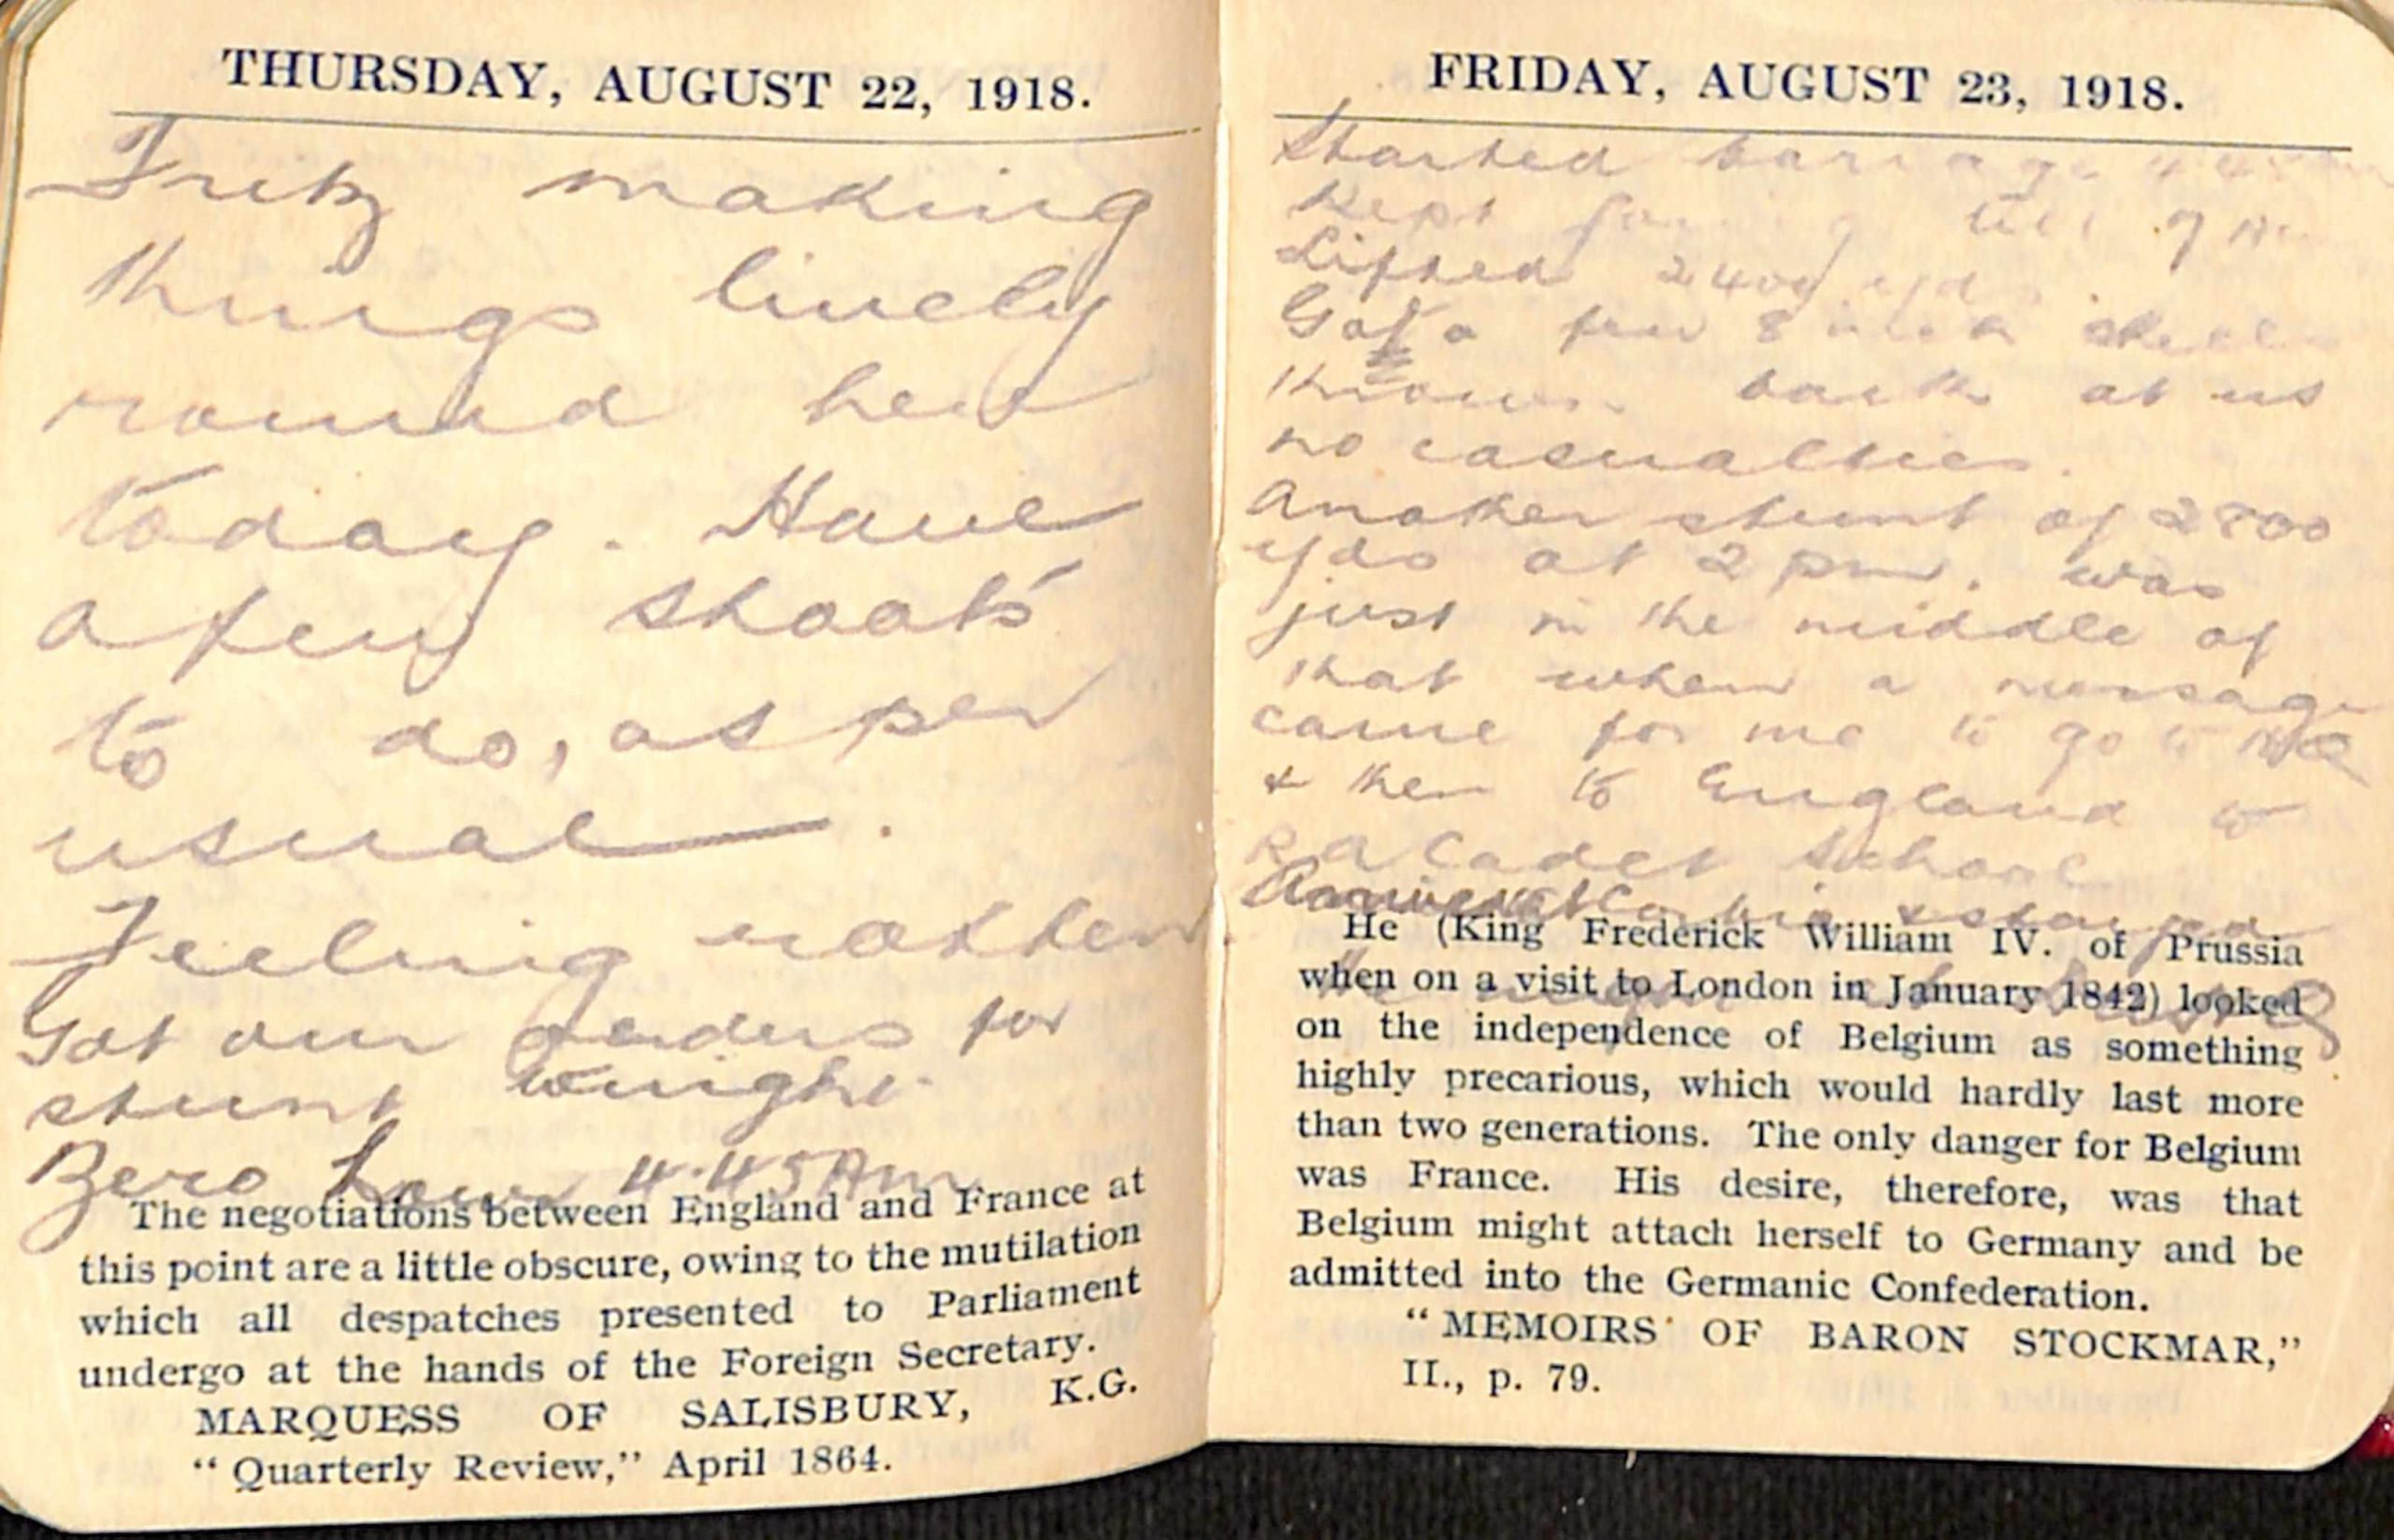 THURSDAY, AUGUST 22, 1918.
Fritz making
things lively
round here
today. Have
a few shoots
to do, as per
usual.
Feeling rotten
Got our orders for
stunt tonight.
Zero hour 4.45 AM
The negotiations between England and France at
this point are a little obscure, owing to the mutilation
which all despatches presented to Parliament
undergo at the hands of the Foreign Secretary.
MARQUESS OF SALISBURY, K.G.
"Quarterly Review," April 1864.
FRIDAY, AUGUST 23, 1918.
Started barrage
Kept going till
Lifted 2400 yds.
Got a few 8 inch shells
thrown back at us
no casualties.
Another stunt of 2800
yds at 2 pm. was
just in the middle of
that when a message
came for me to go to
& then to England to
R A Cadet School
Arrived & stayed
the night
He (King Frederick William IV. of Prussia
when on a visit to London in January 1842) looked
on the independence of Belgium as something
highly precarious, which would hardly last more
than two generations. The only danger for Belgium
was France. His desire, therefore, was that
Belgium might attach herself to Germany and be
admitted into the Germanic Confederation.
"MEMOIRS OF BARON STOCKMAR,"
II., p. 79.